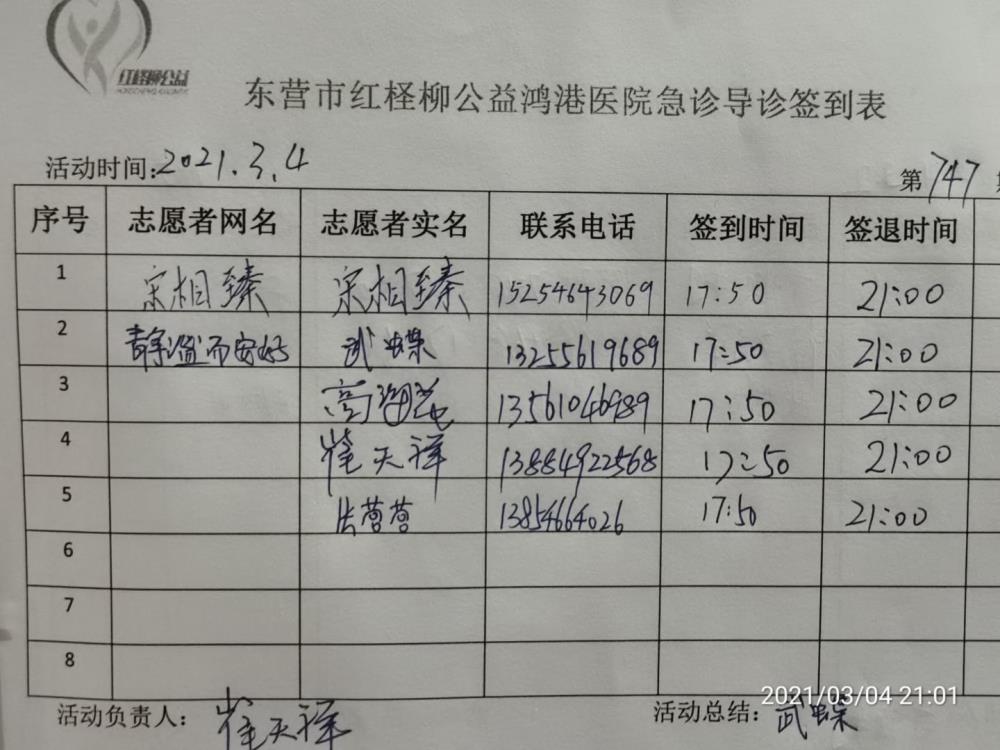 红柽柳公益
东营市红柽柳公益鸿港医院急诊导诊签到表
活动时间:2021.3.4
第747
序号 志愿者网名 志愿者实名 联系电话 签到时间 签退时间
1 宋相臻 宋相臻 15254643069 17:50 21:00
2 静谧而安好 武蝶 13255619689 17:50 21:00
3 高 13561046989 17:50 21:00
4 崔天祥 13884922568 17:50 21:00
5 营营 13854664026 17:50 21:00
6
7
8
2021/03/04 21:01
活动负责人: 崔天祥 活动总结: 武蝶